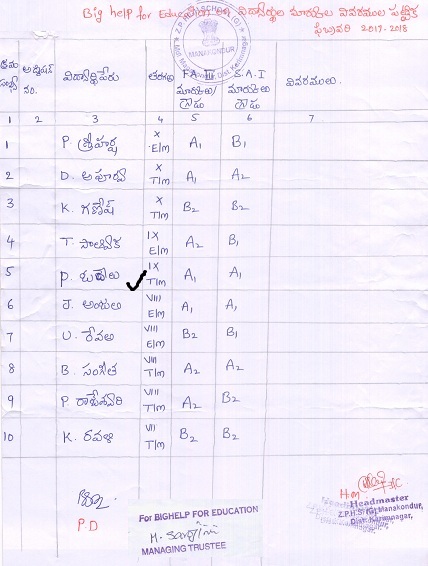 Big help for Education on విద్యార్థుల మార్కుల వివరముల పట్టిక
ఫిబ్రవరి 2017-2018
Z.P.H. SCHOOL (G)
MANAKONDUR
క్రమ సంఖ్య అడ్మిషన్ నం. విద్యార్థి పేరు తరగతి FA III మార్కులు/గ్రేడు S.A.I మార్కులు గ్రేడు వివరములు.
1 2 3 4 5 6 7
1 P. శ్రీహర్ష X E/m A1 B1
2 D. అపూర్వ X T/m A1 A2
3 K. గణేష్ X T/m B2 B2
4 T. సాత్విక IX E/m A2 B1
5 P. IX T/m A1 A1
6 J. అంజలి VIII E/m A1 A1
7 U. రేవతి VIII E/m B2 B1
8 B. సంగీత VIII T/m A2 A2
9 P. రాజేశ్వరి VII T/m A2 B2
10 K. రవళి VI T/m B2 B2
P.D
For BIGHELP FOR EDUCATION
MANAGING TRUSTEE
H.m
Headmaster
Z.P.H.S (G) Manakondur,
Dist: Karimnagar,